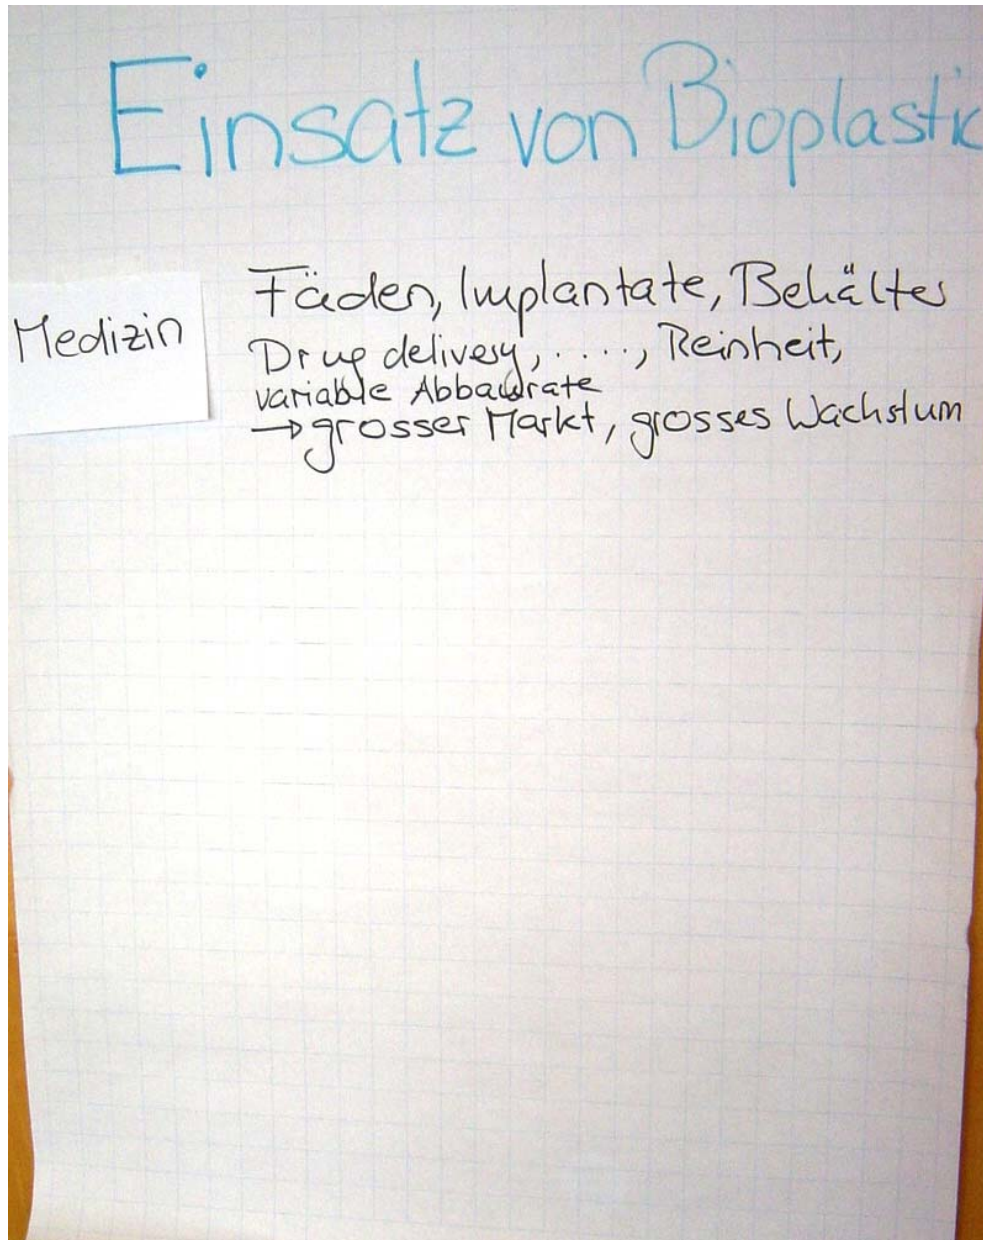 Einsatz von Bioplastic
Medizin
Fäden, Implantate, Behälter
Drug delivery, ....., Reinheit,
variable Abbaurate
→ grosser Markt, grosses Wachstum